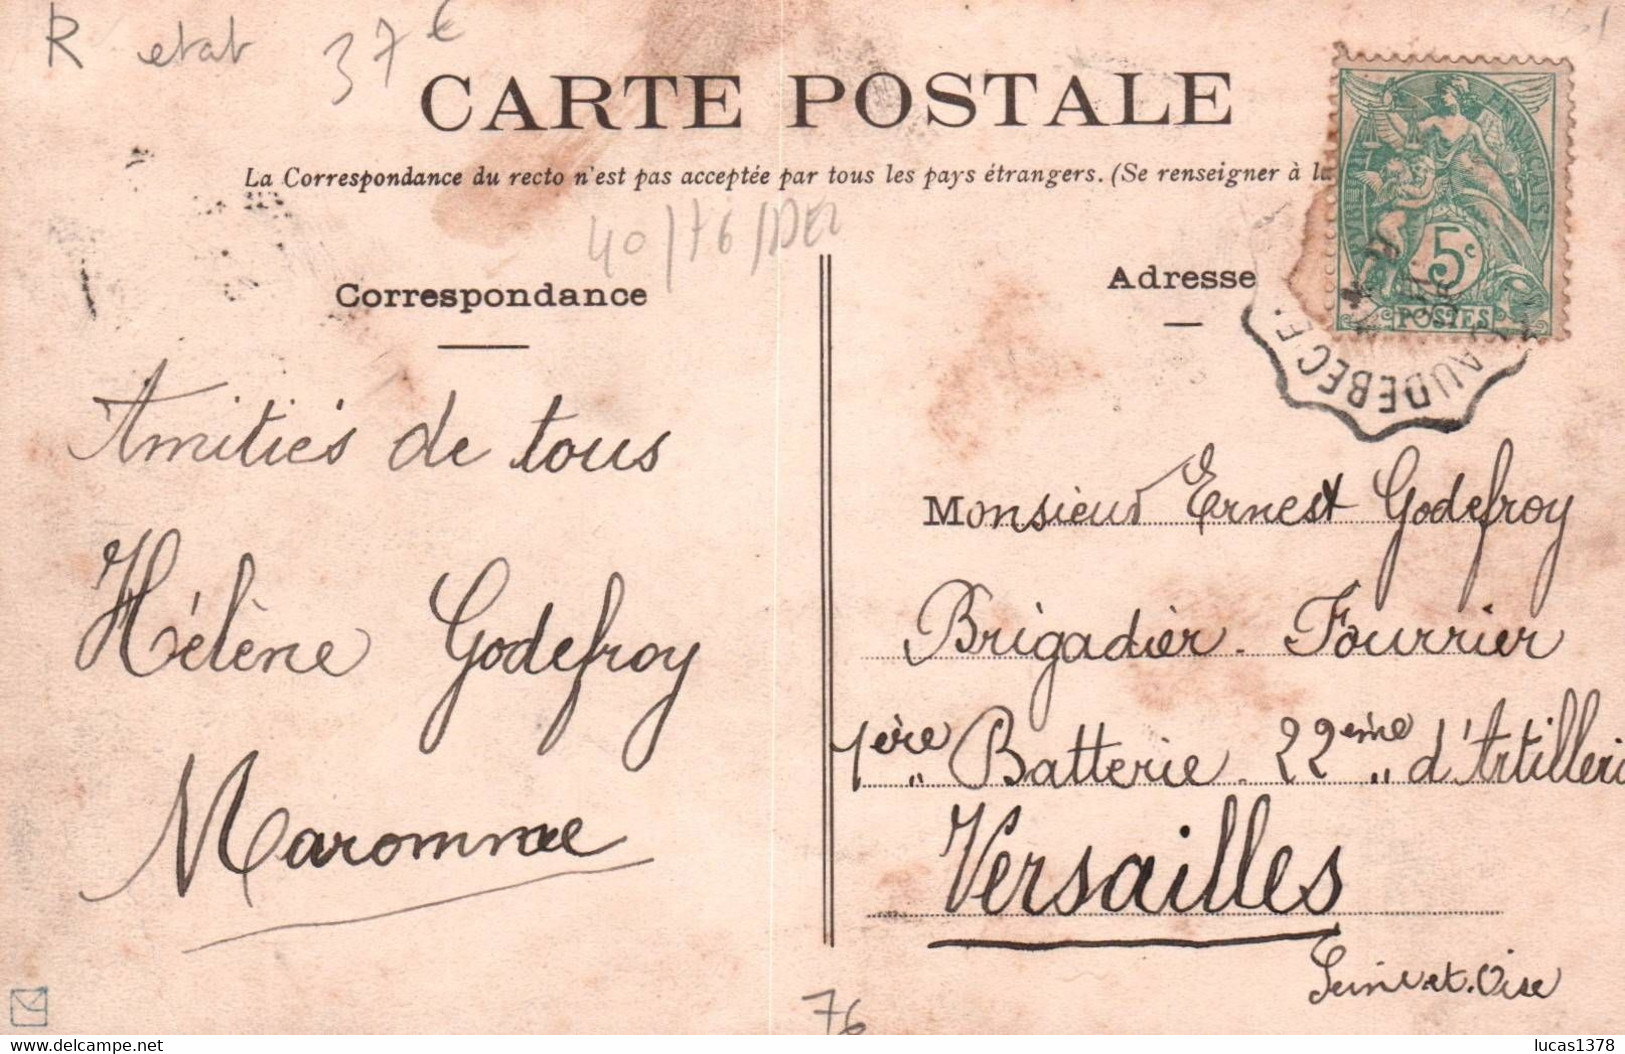 R etat 37 €
CARTE POSTALE
La Correspondance du recto n'est pas acceptée par tous les pays étrangers. (Se renseigner à la
40/76/DEL
Correspondance
Amitiés de tous
Hélène Godefroy
Maromme
Adresse
FRANÇAISE
5c
POSTES
CAUDEBEC E.
Monsieur Ernest Godefroy
Brigadier-Fourrier
1ère Batterie 22ème d'Artilleri
Versailles
Seine-et-Oise
76
lucas1378